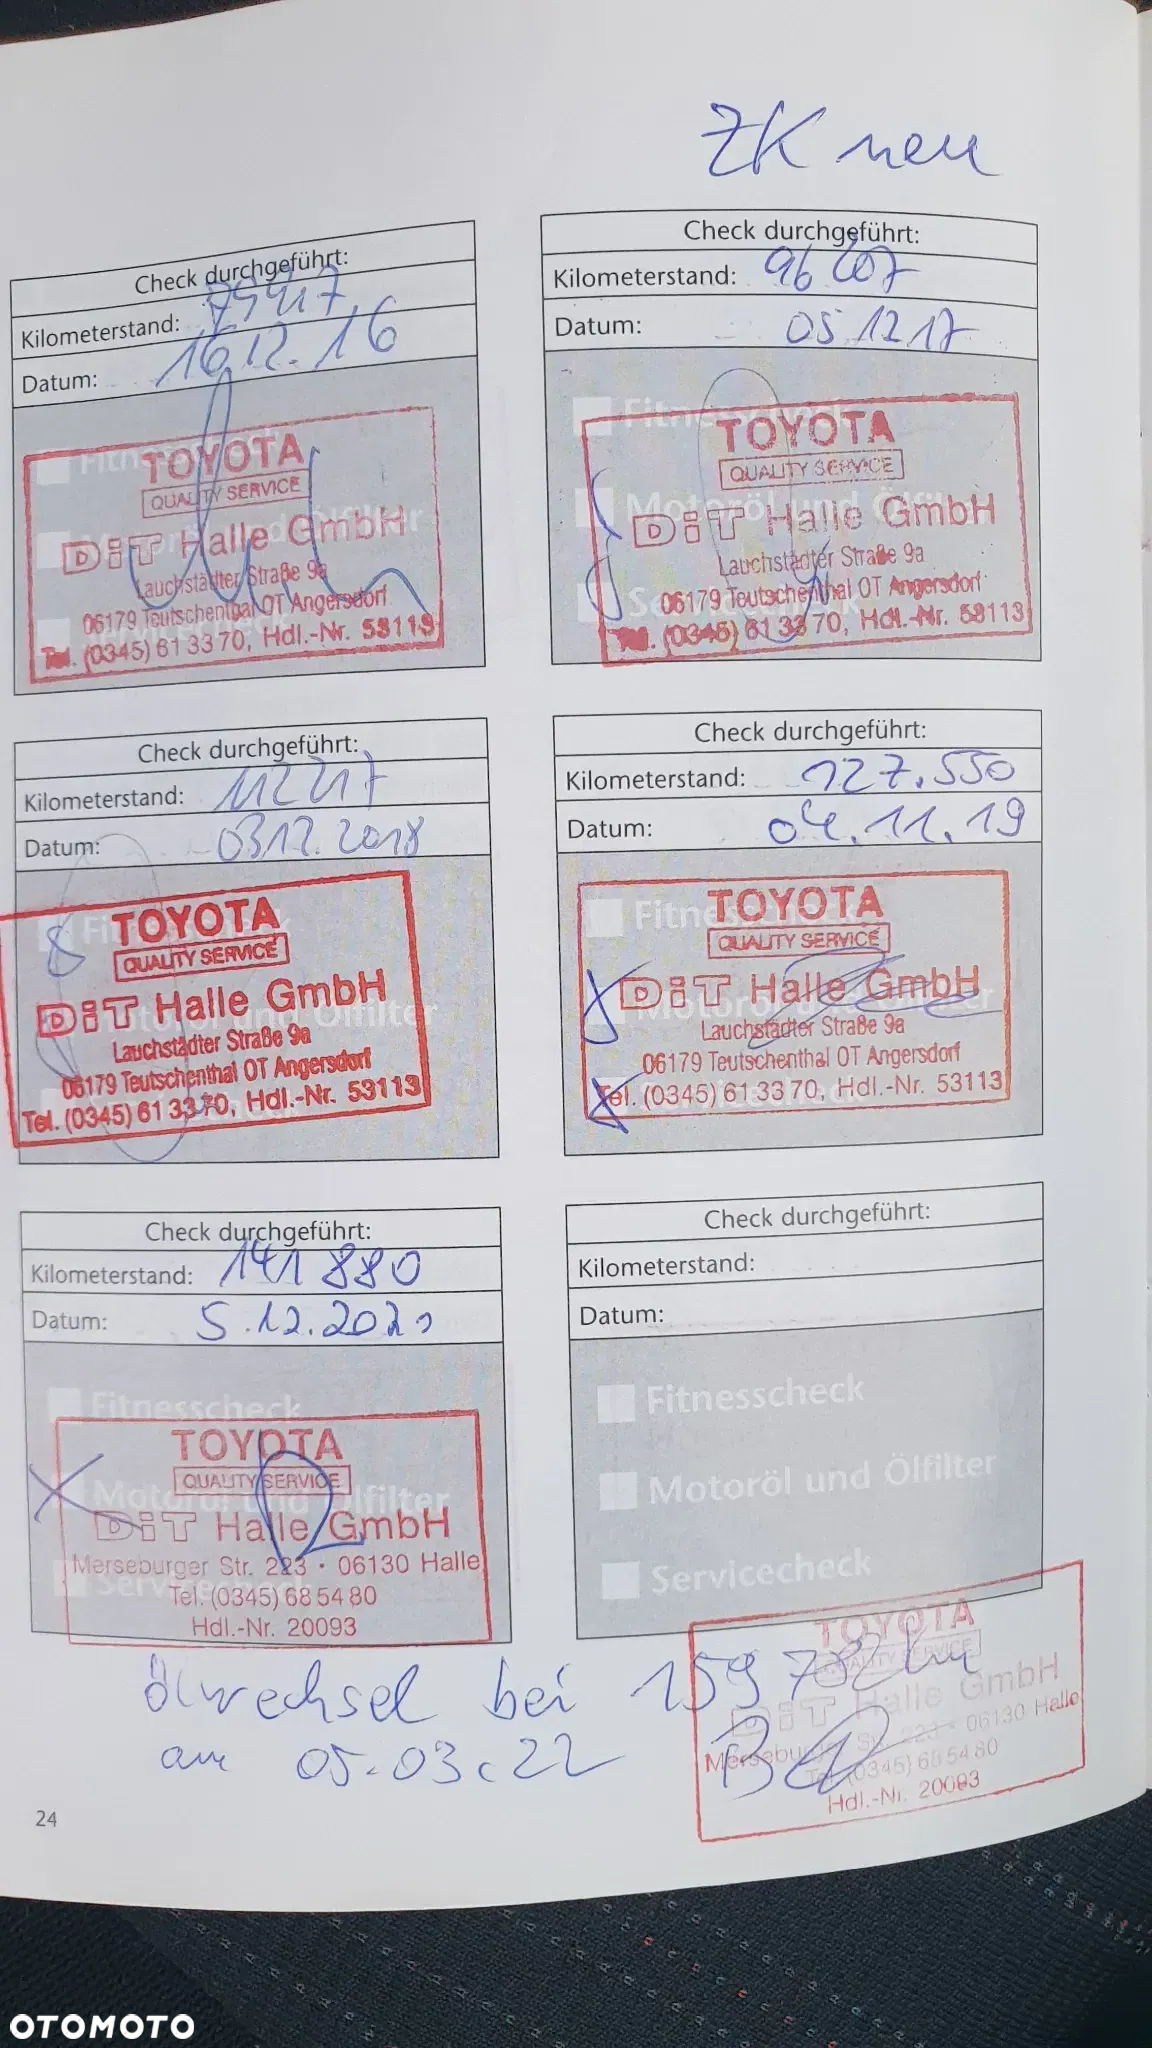 ZK neu
Check durchgeführt:
Kilometerstand: 79417
Datum: 16.12.16
Fitnesscheck
TOYOTA
QUALITY SERVICE
Motoröl und Ölfilter
DiT Halle GmbH
Lauchstädter Straße 9a
06179 Teutschenthal OT Angersdorf
Servicecheck
Tel. (0345) 61 33 70, Hdl.-Nr. 53113
Check durchgeführt:
Kilometerstand: 96407
Datum: 05.12.17
Fitnesscheck
TOYOTA
QUALITY SERVICE
Motoröl und Ölfilter
DiT Halle GmbH
Lauchstädter Straße 9a
06179 Teutschenthal OT Angersdorf
Servicecheck
Tel. (0345) 61 33 70, Hdl.-Nr. 53113
Check durchgeführt:
Kilometerstand: 112217
Datum: 03.12.2018
Fitnesscheck
TOYOTA
QUALITY SERVICE
DiT Halle GmbH
Motoröl und Ölfilter
Lauchstädter Straße 9a
06179 Teutschenthal OT Angersdorf
Tel. (0345) 61 33 70, Hdl.-Nr. 53113
Servicecheck
Check durchgeführt:
Kilometerstand: 127.550
Datum: 04.11.19
TOYOTA
Fitnesscheck
QUALITY SERVICE
DiT Halle GmbH
Motoröl und Ölfilter
Lauchstädter Straße 9a
06179 Teutschenthal OT Angersdorf
Tel. (0345) 61 33 70, Hdl.-Nr. 53113
Servicecheck
Check durchgeführt:
Kilometerstand: 141 880
Datum: 5.12.2020
Fitnesscheck
TOYOTA
QUALITY SERVICE
Motoröl und Ölfilter
DiT Halle GmbH
Merseburger Str. 223 · 06130 Halle
Servicecheck
Tel. (0345) 68 54 80
Hdl.-Nr. 20093
Check durchgeführt:
Kilometerstand:
Datum:
Fitnesscheck
Motoröl und Ölfilter
Servicecheck
Ölwechsel bei 159782 km
am 05.03.22
TOYOTA
QUALITY SERVICE
DiT Halle GmbH
Merseburger Str. 223 · 06130 Halle
Tel. (0345) 68 54 80
Hdl.-Nr. 20093
24
OTOMOTO